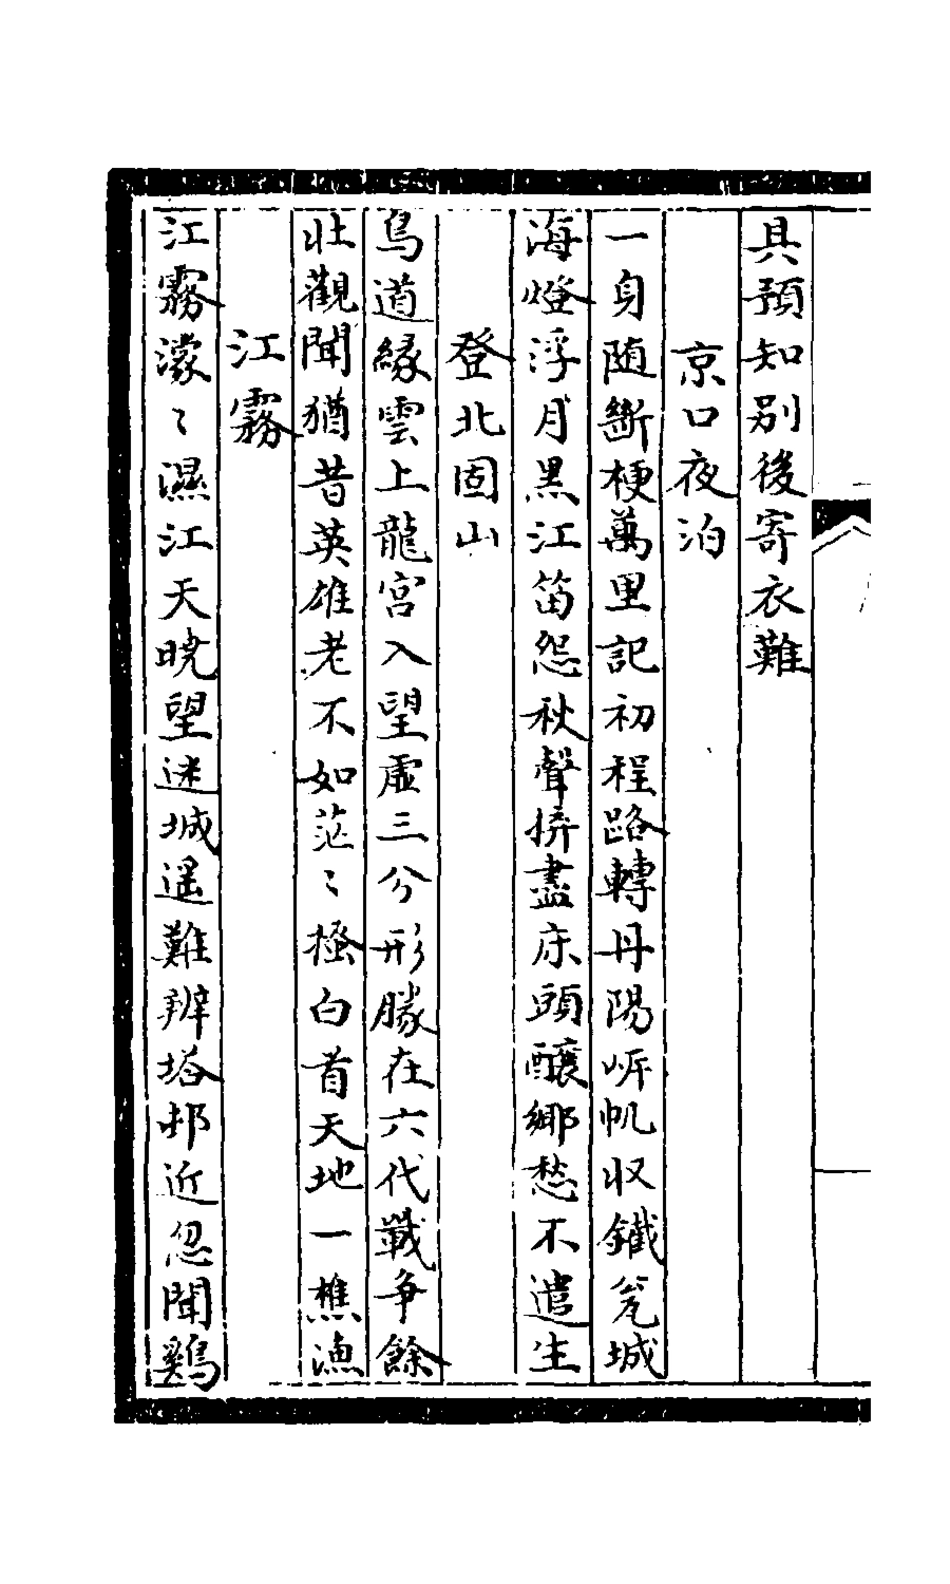 具預知別後寄衣難
京口夜泊
一身随斷梗萬里記初程路轉丹陽岸帆收鐵瓮城
海燈浮月黑江笛怨秋聲擠盡床頭釀鄉愁不遣生
登北固山
鳥道緣雲上龍宮入望虛三分形勝在六代戰争餘
壯觀聞猶昔英雄老不如茫〻搔白首天地一樵漁
江霧
江霧濛〻濕江天曉望迷城遥難辨塔邨近忽聞鷄